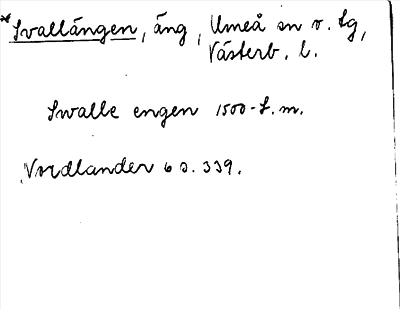 *Svallängen, äng, Umeå sn o. lg,
Västerb. l.
Swalle engen 1500-t. m.
Nordlander 6 s. 339.